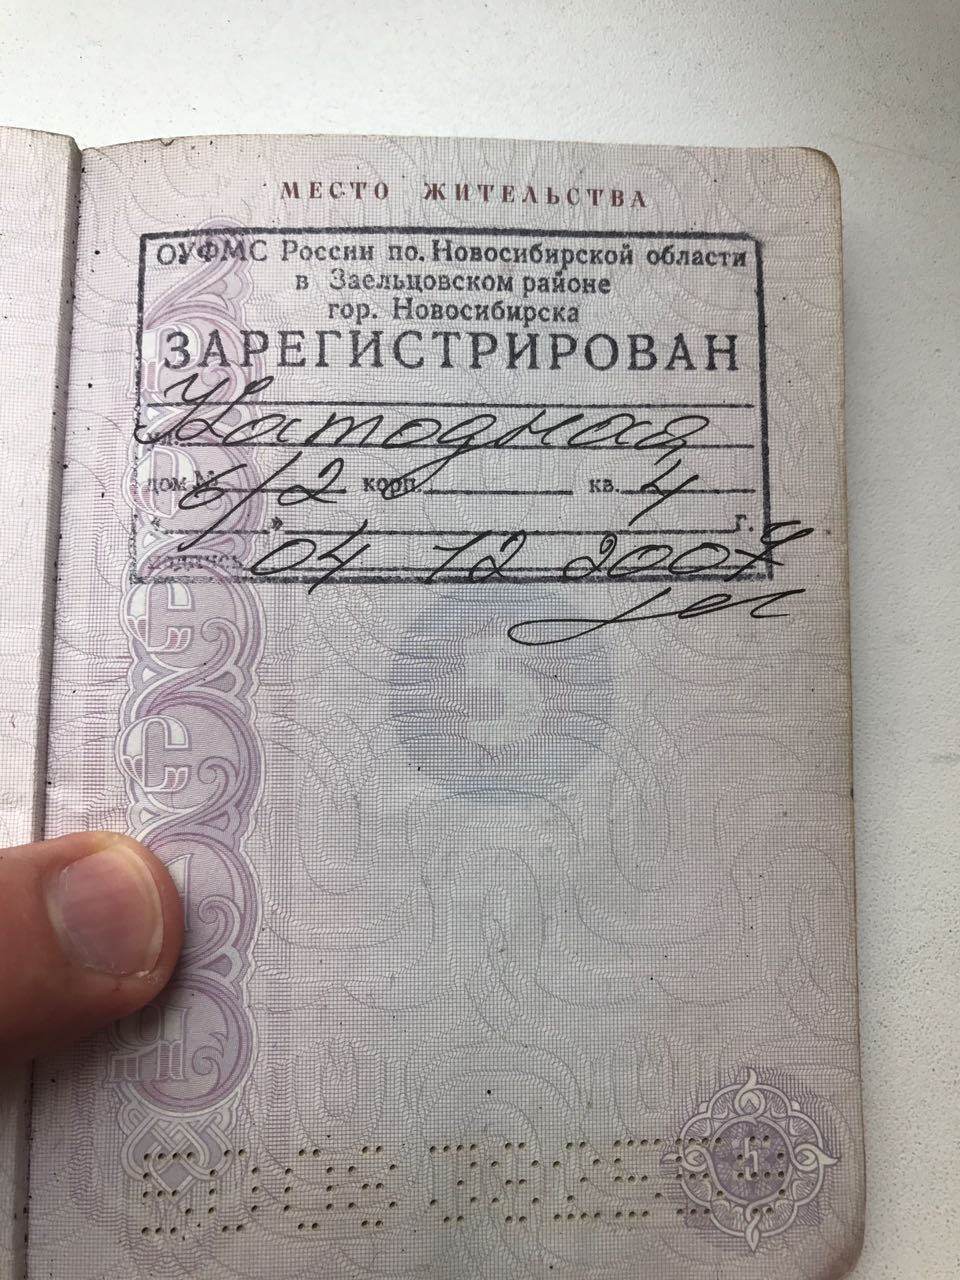 МЕСТО ЖИТЕЛЬСТВА
ОУФМС России по Новосибирской области
в Заельцовском районе
гор. Новосибирска
ЗАРЕГИСТРИРОВАН
ул. Катодная
дом № 6/2 корп. кв. 4
" " г.
подпись 04 12 2007
5